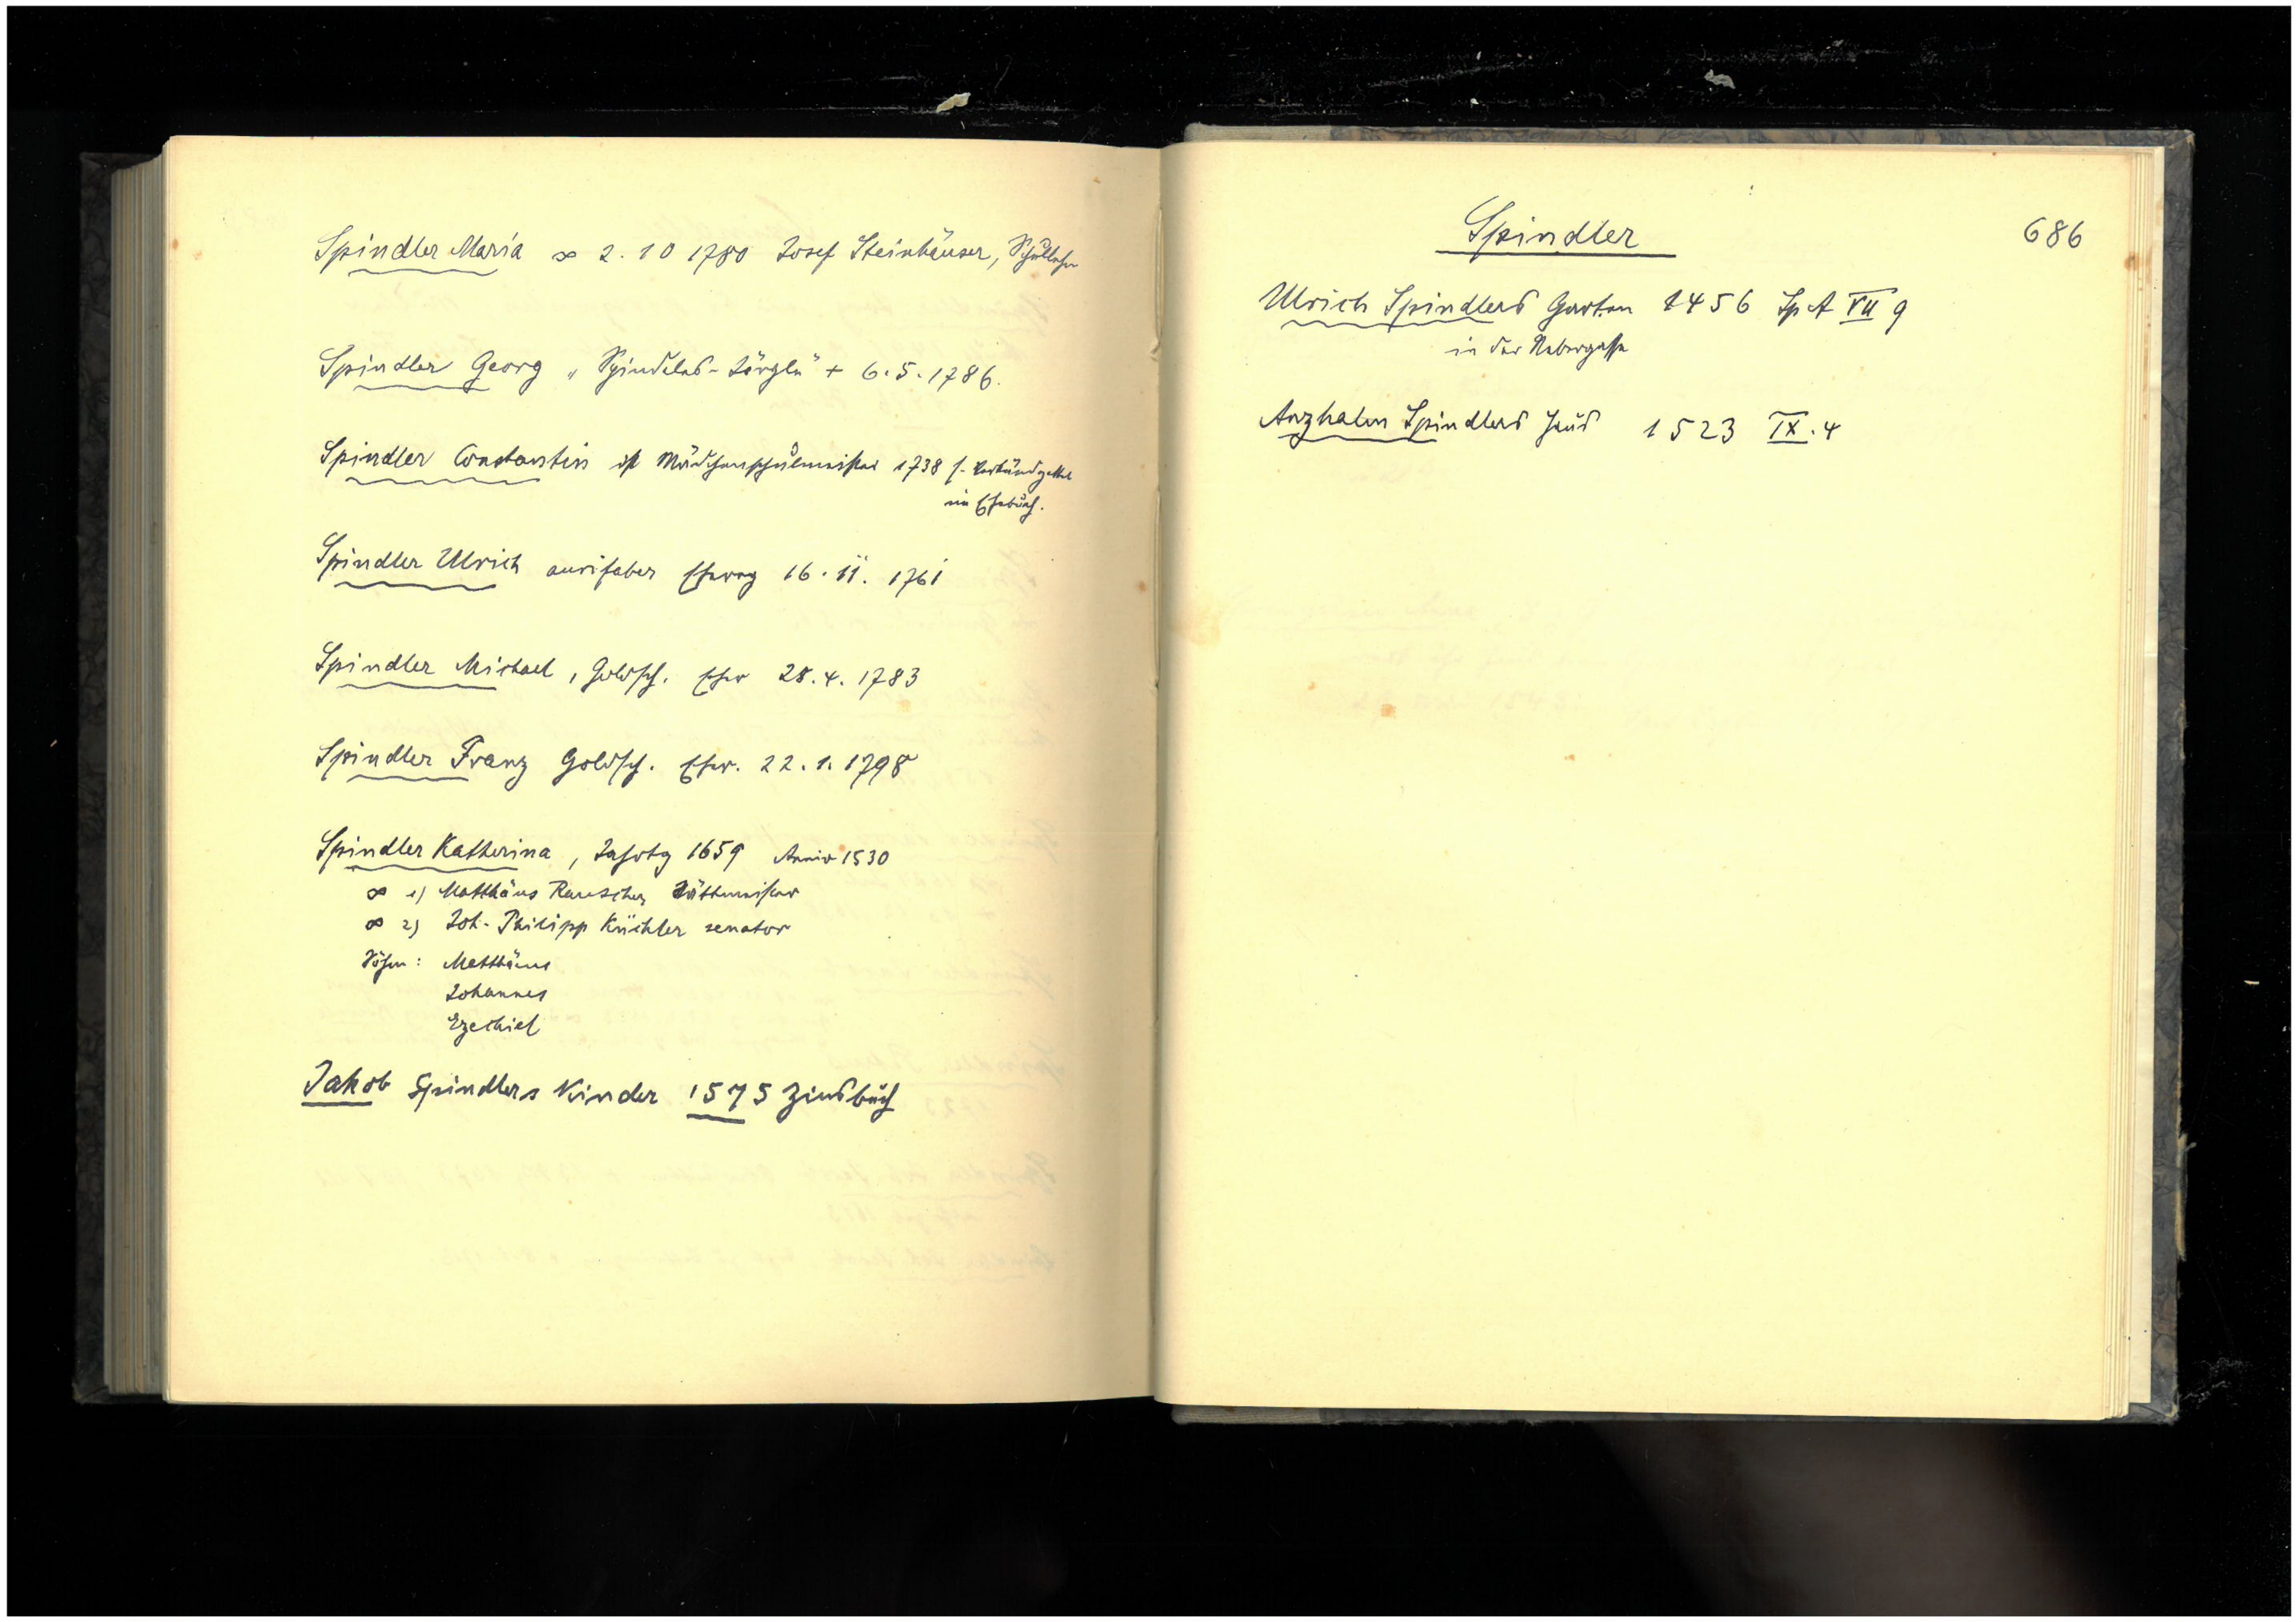 Spindler Maria ∞ 2. 10 1780 Josef Steinhäuser, Schullehr
Spindler Georg „Spindeles-Jörgle" + 6.5.1786.
Spindler Constantin ist Mädchenschulmeister 1738 s. Verkündzettel
im Ehebuch.
Spindler Ulrich aurifaber Ehevvg 16. 11. 1761
Spindler Michael, Goldsch. Ehev 28.4.1783
Spindler Franz Goldsch. Ehev. 22.1.1798
Spindler Katherina, Jahrtg 1659 Anniv 1530
∞ 1) Matthäus Rauscher Stättmeister
∞ 2) Joh. Philipp Küchler senator
Söhne: Matthäus
Johannes
Ezechiel
Jakob Spindlers Kinder 1575 Zinsbuch
Spindler 686
Ulrich Spindlers Garten 1456 Sp A VII 9
in der Nebergasse
Spindlers Haus 1523 IX. 4